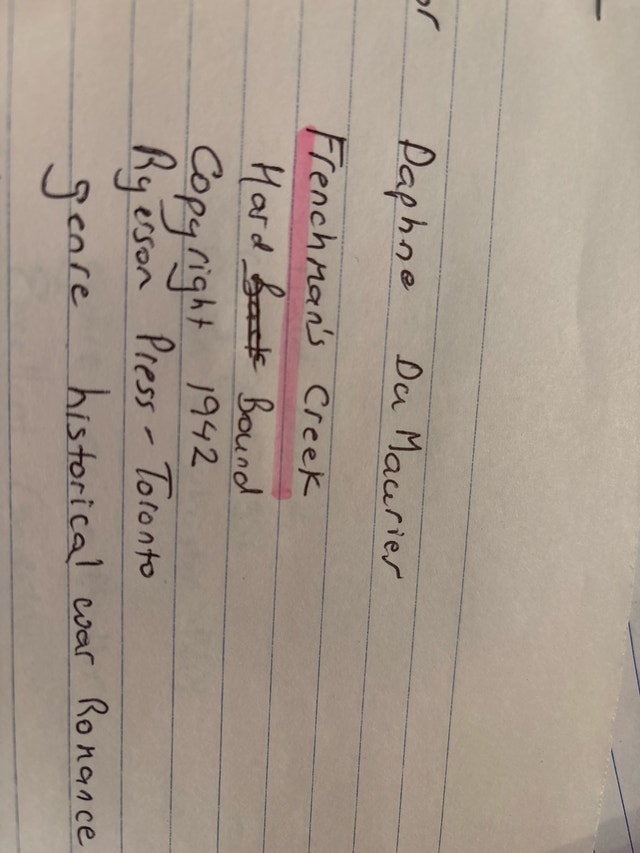 or Daphne Du Maurier
Frenchman's Creek
Hard Bound
Copyright 1942
Ryerson Press - Toronto
genre historical war Romance